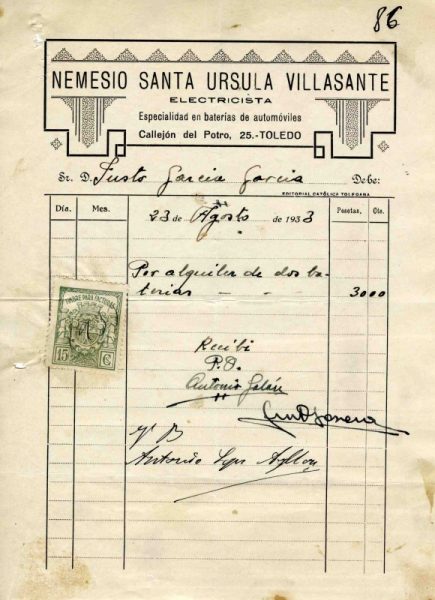 86
NEMESIO SANTA URSULA VILLASANTE
ELECTRICISTA
Especialidad en baterías de automóviles
Callejón del Potro, 25.-TOLEDO
Sr. D. Justo Garcia Garcia Debe:
EDITORIAL CATÓLICA TOLEDANA
Día. Mes. 23 de Agosto de 1933 Pesetas, Cts.
Por alquiler de dos ba-
terias - - 3000
TIMBRE PARA FACTURAS
15 C
Recibi
P.O.
Antonio Galán
Vº B
Antonio Ayllon